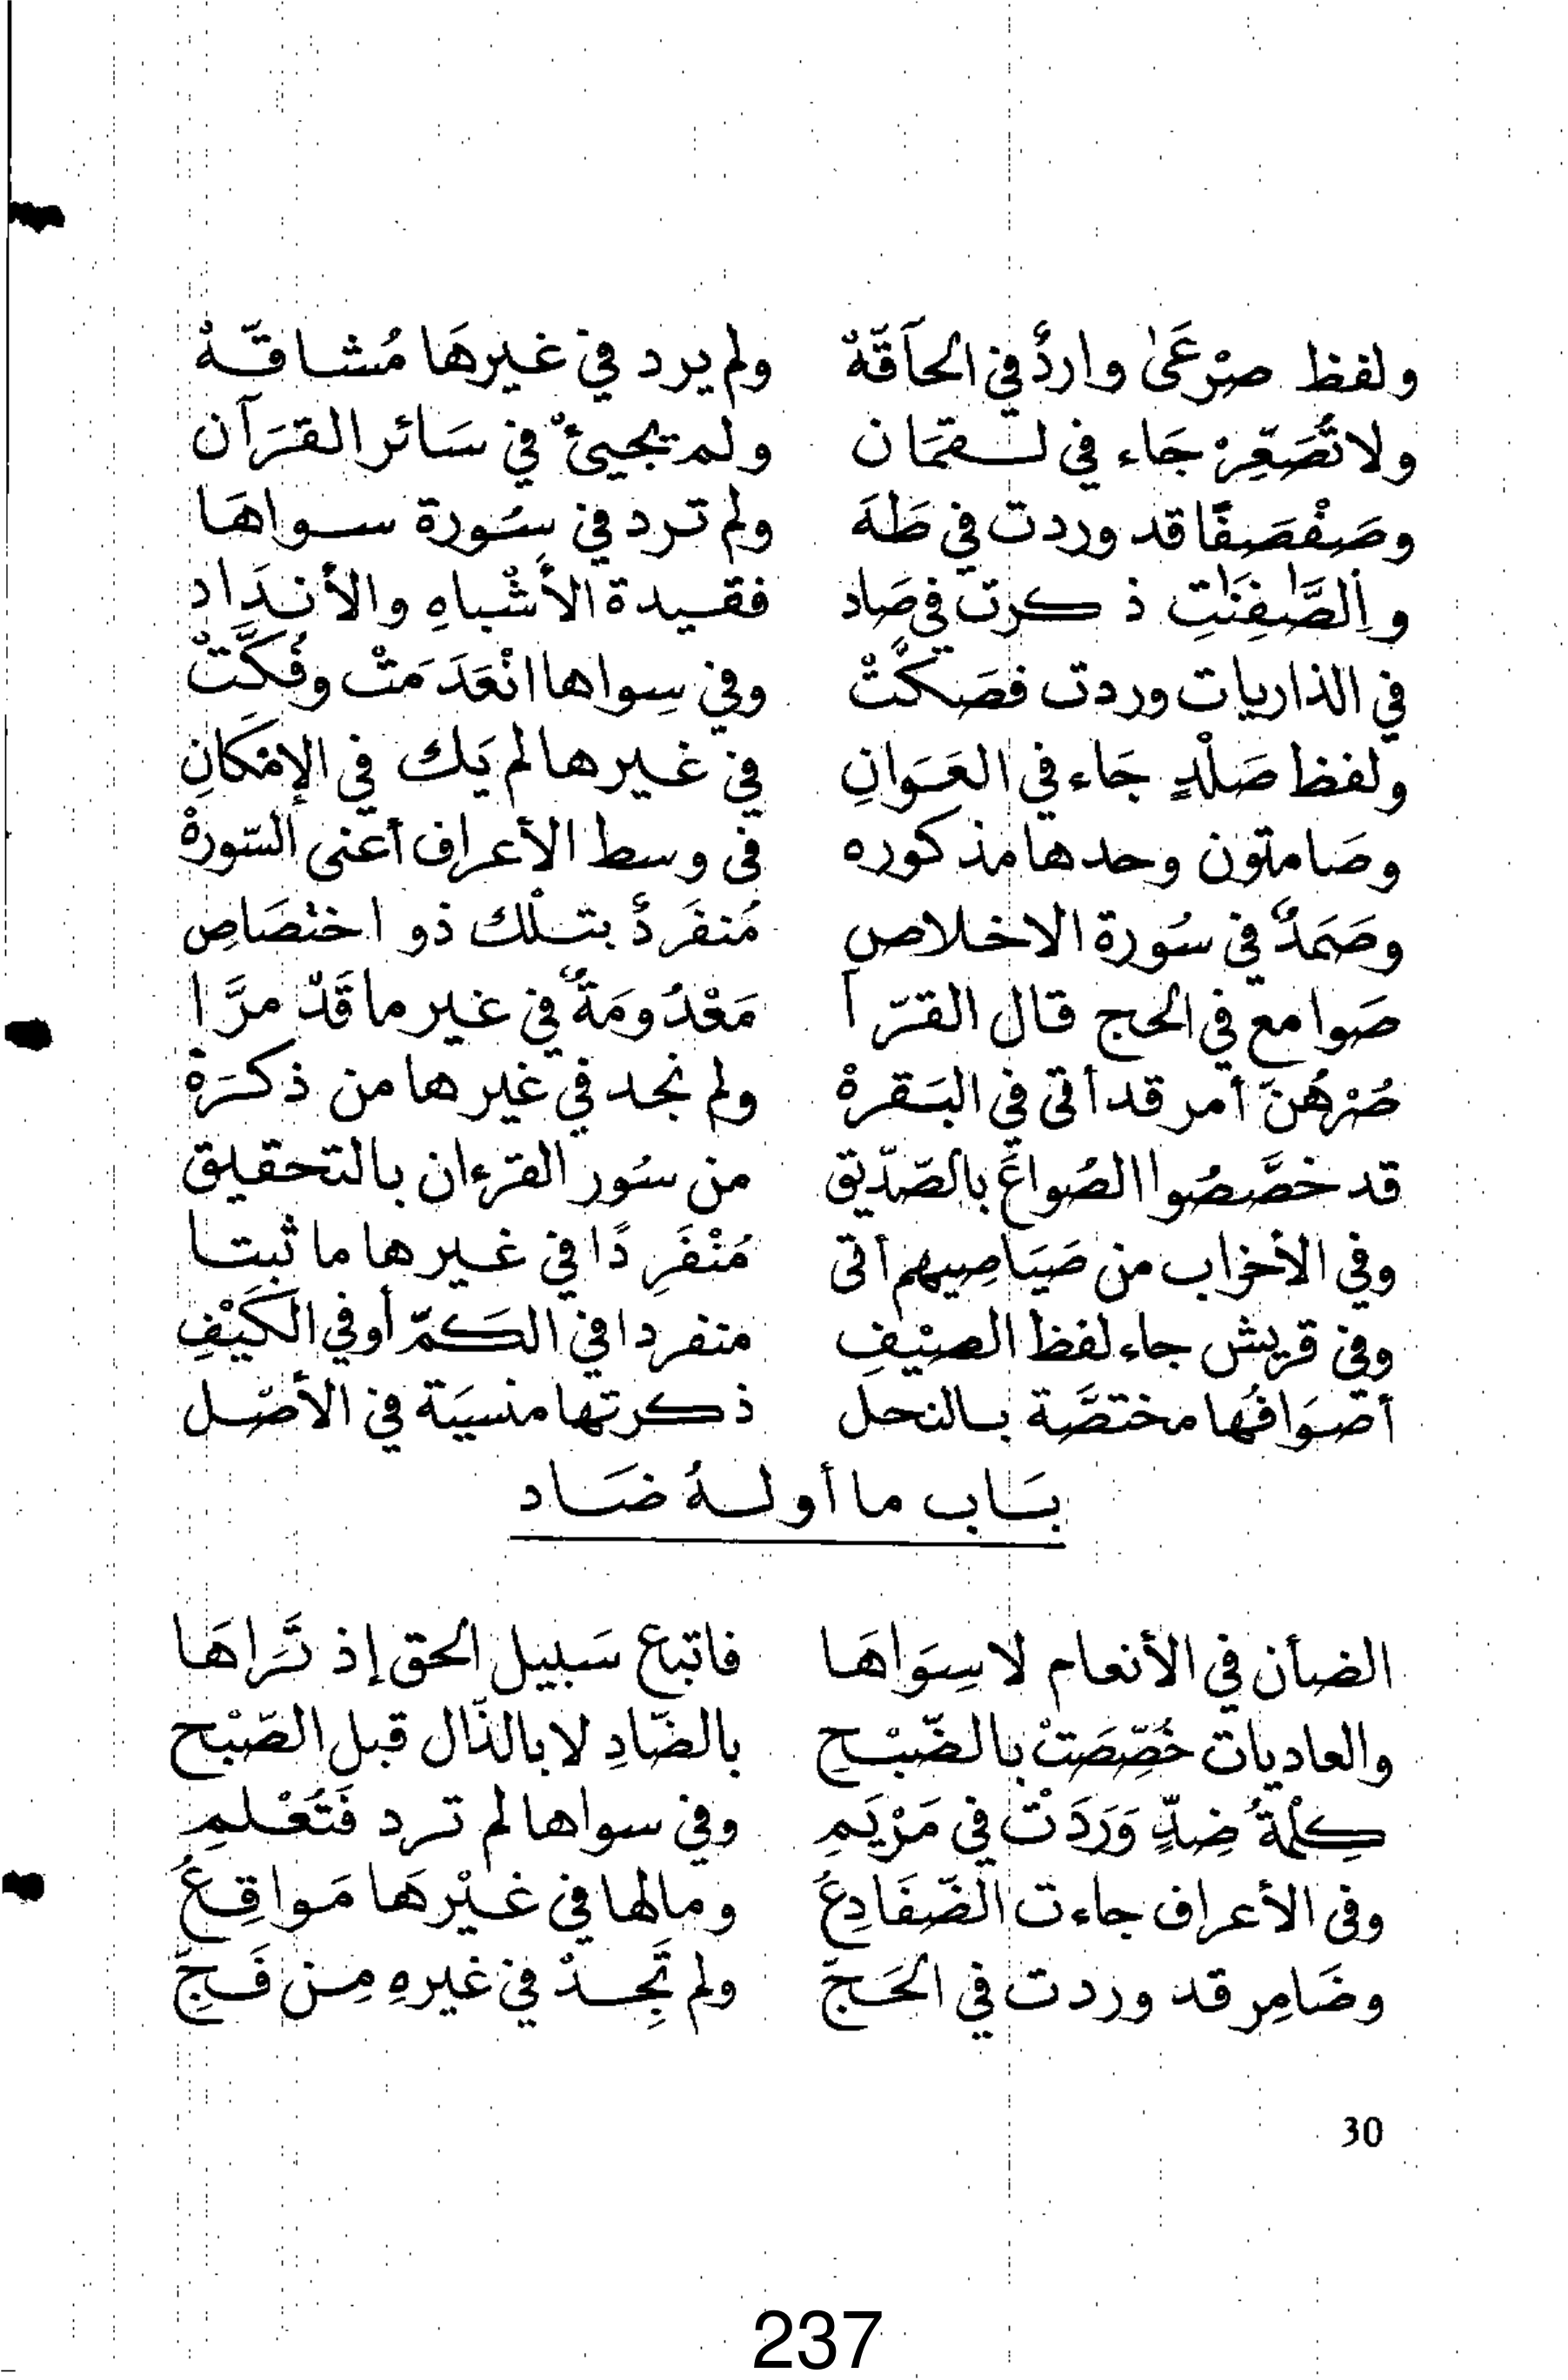 ولفظ صَرْعَىٰ واردٌ في الحآقّهْ ولم يرد في غيرهَا مُشاقّهْ
ولا تُصَعِّرْ جَاء في لقمَان ولم يجيئْ في سَائر القرَآن
وصَفْصَفًا قد وردت في طَهَ ولم ترد في سُورة سواهَا
والصَّافِنَاتِ ذكرت في صَاد فقيدة الأَشْباهِ والأندَاد
في الذاريات وردت فصَكَّتْ وفي سِواها انْعَدَمَتْ وفُكَّتْ
ولفظ صَلْدٍ جَاء في العَوَانِ في غيرها لم يَك في الإمْكَانِ
وصَامتون وحدها مذكوره في وسط الأعراف أعنى السّورةْ
وصَمَدٌ في سُورة الاخلاص مُنفَردٌ بتلْك ذو اختصَاصِ
صَوامع في الحج قال القرّآ مَعْدُومَةٌ في غير ما قَدْ مرَّا
صُرْهُنّ أمر قد أتى في البَقرةْ ولم نجد في غيرها من ذكرَهْ
قد خصَّصُوا الصُواعَ بالصّدّيق من سُور القرءان بالتحقيق
وفي الأخزاب من صَيَاصِيهم أتى مُنْفَرِدًا في غيرها ما ثبتا
وفي قريش جاء لفظ الصيْفِ منفردا في الكمّ أو في الكَيْفِ
أصْوَافُها مختصَّة بالنحل ذكرتها منسيَة في الأصْل
بَاب ما أولهُ ضَاد
الضأن في الأنعام لا سِوَاهَا فاتبع سَبيل الحق إذ تَرَاهَا
والعاديات خُصِّصَتْ بالضّبْح بالضّادِ لا بالذّال قبل الصّبْح
كِلْمَةُ ضِدٍّ وَرَدَتْ في مَرْيَمِ وفي سواها لم ترد فَتُعْلمِ
وفي الأعراف جاءت الضّفَادِعُ ومالها في غيْرهَا مَواقِعُ
وضَامِر قد وردت في الحَجّ ولم تَجِدْ في غيرهِ مِن فَجِّ
30
237